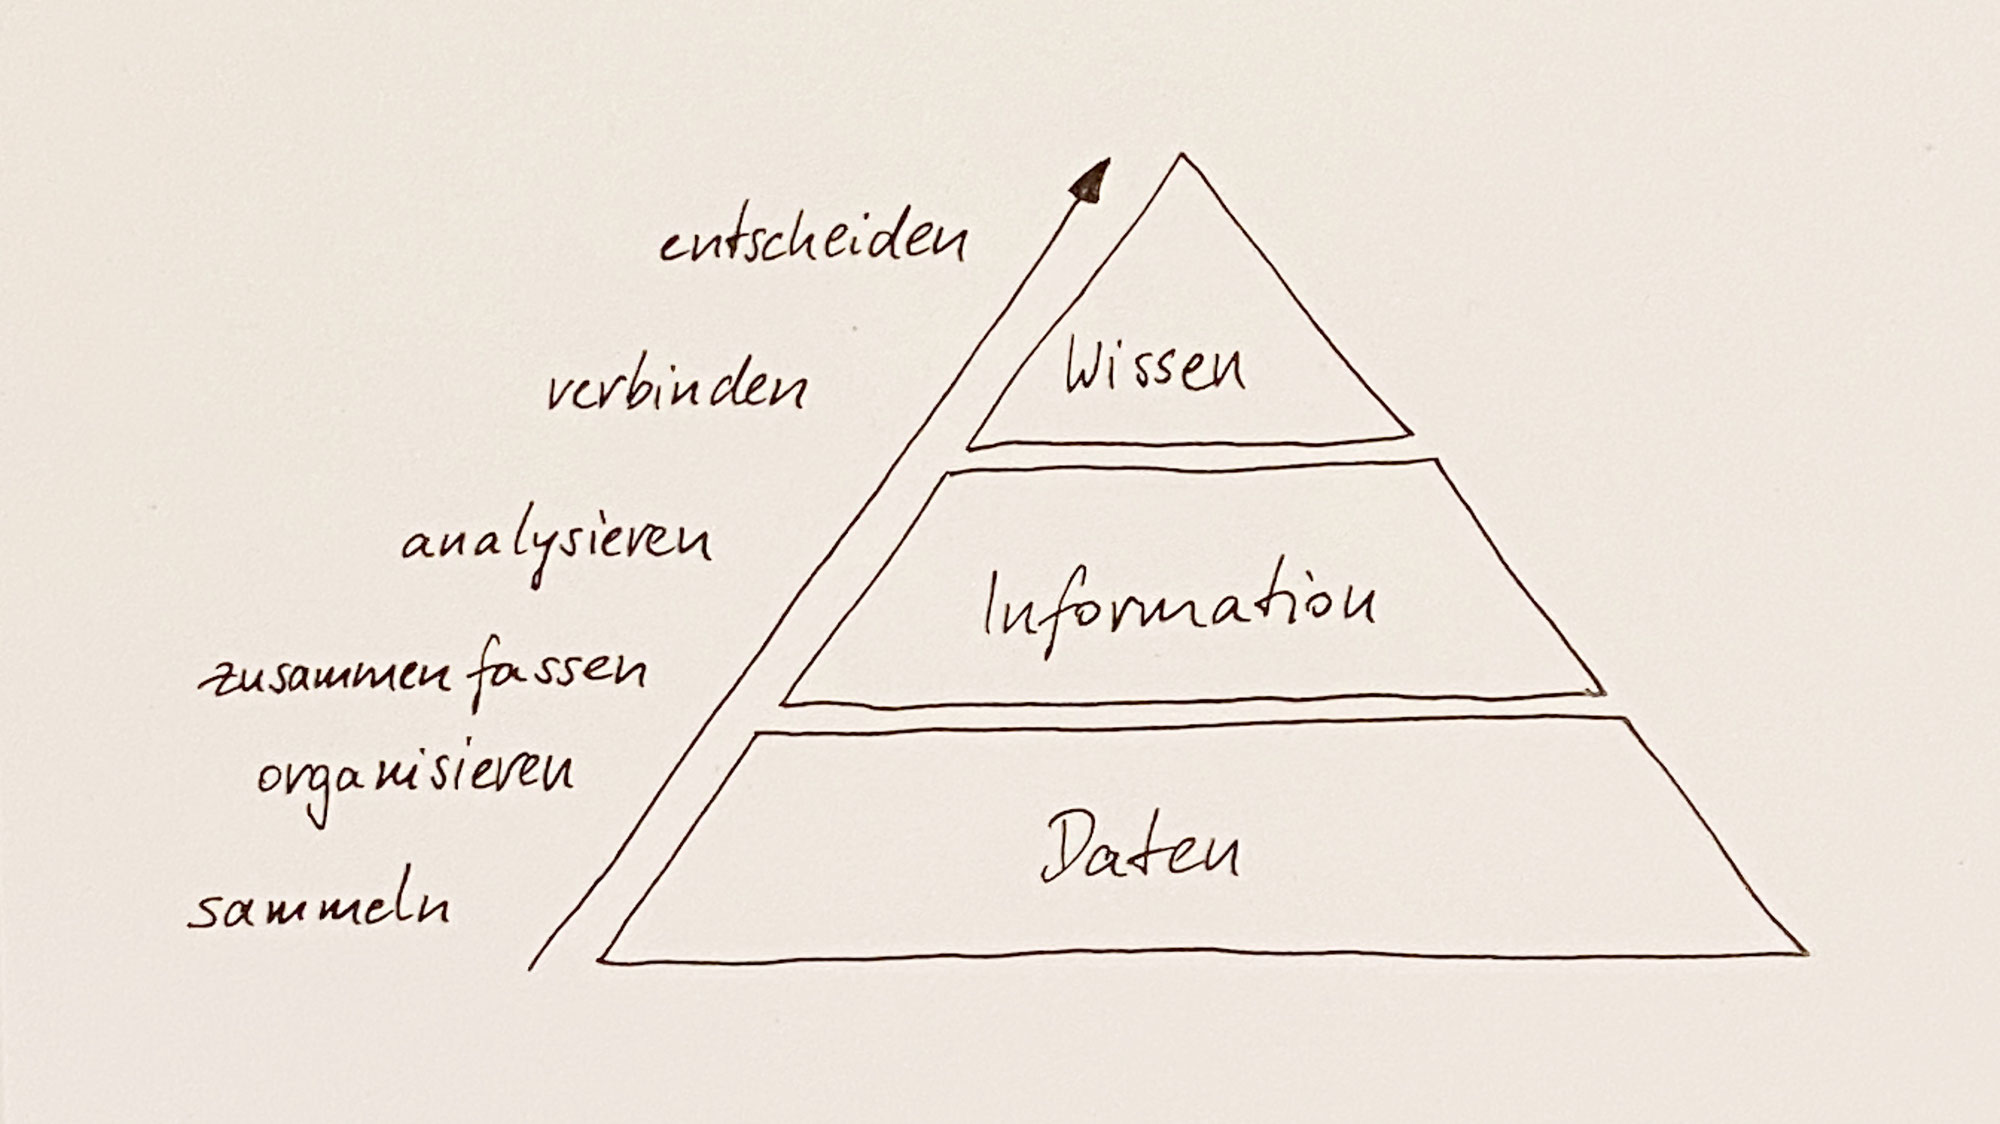 entscheiden
verbinden
Wissen
analysieren
Information
zusammenfassen
organisieren
Daten
sammeln